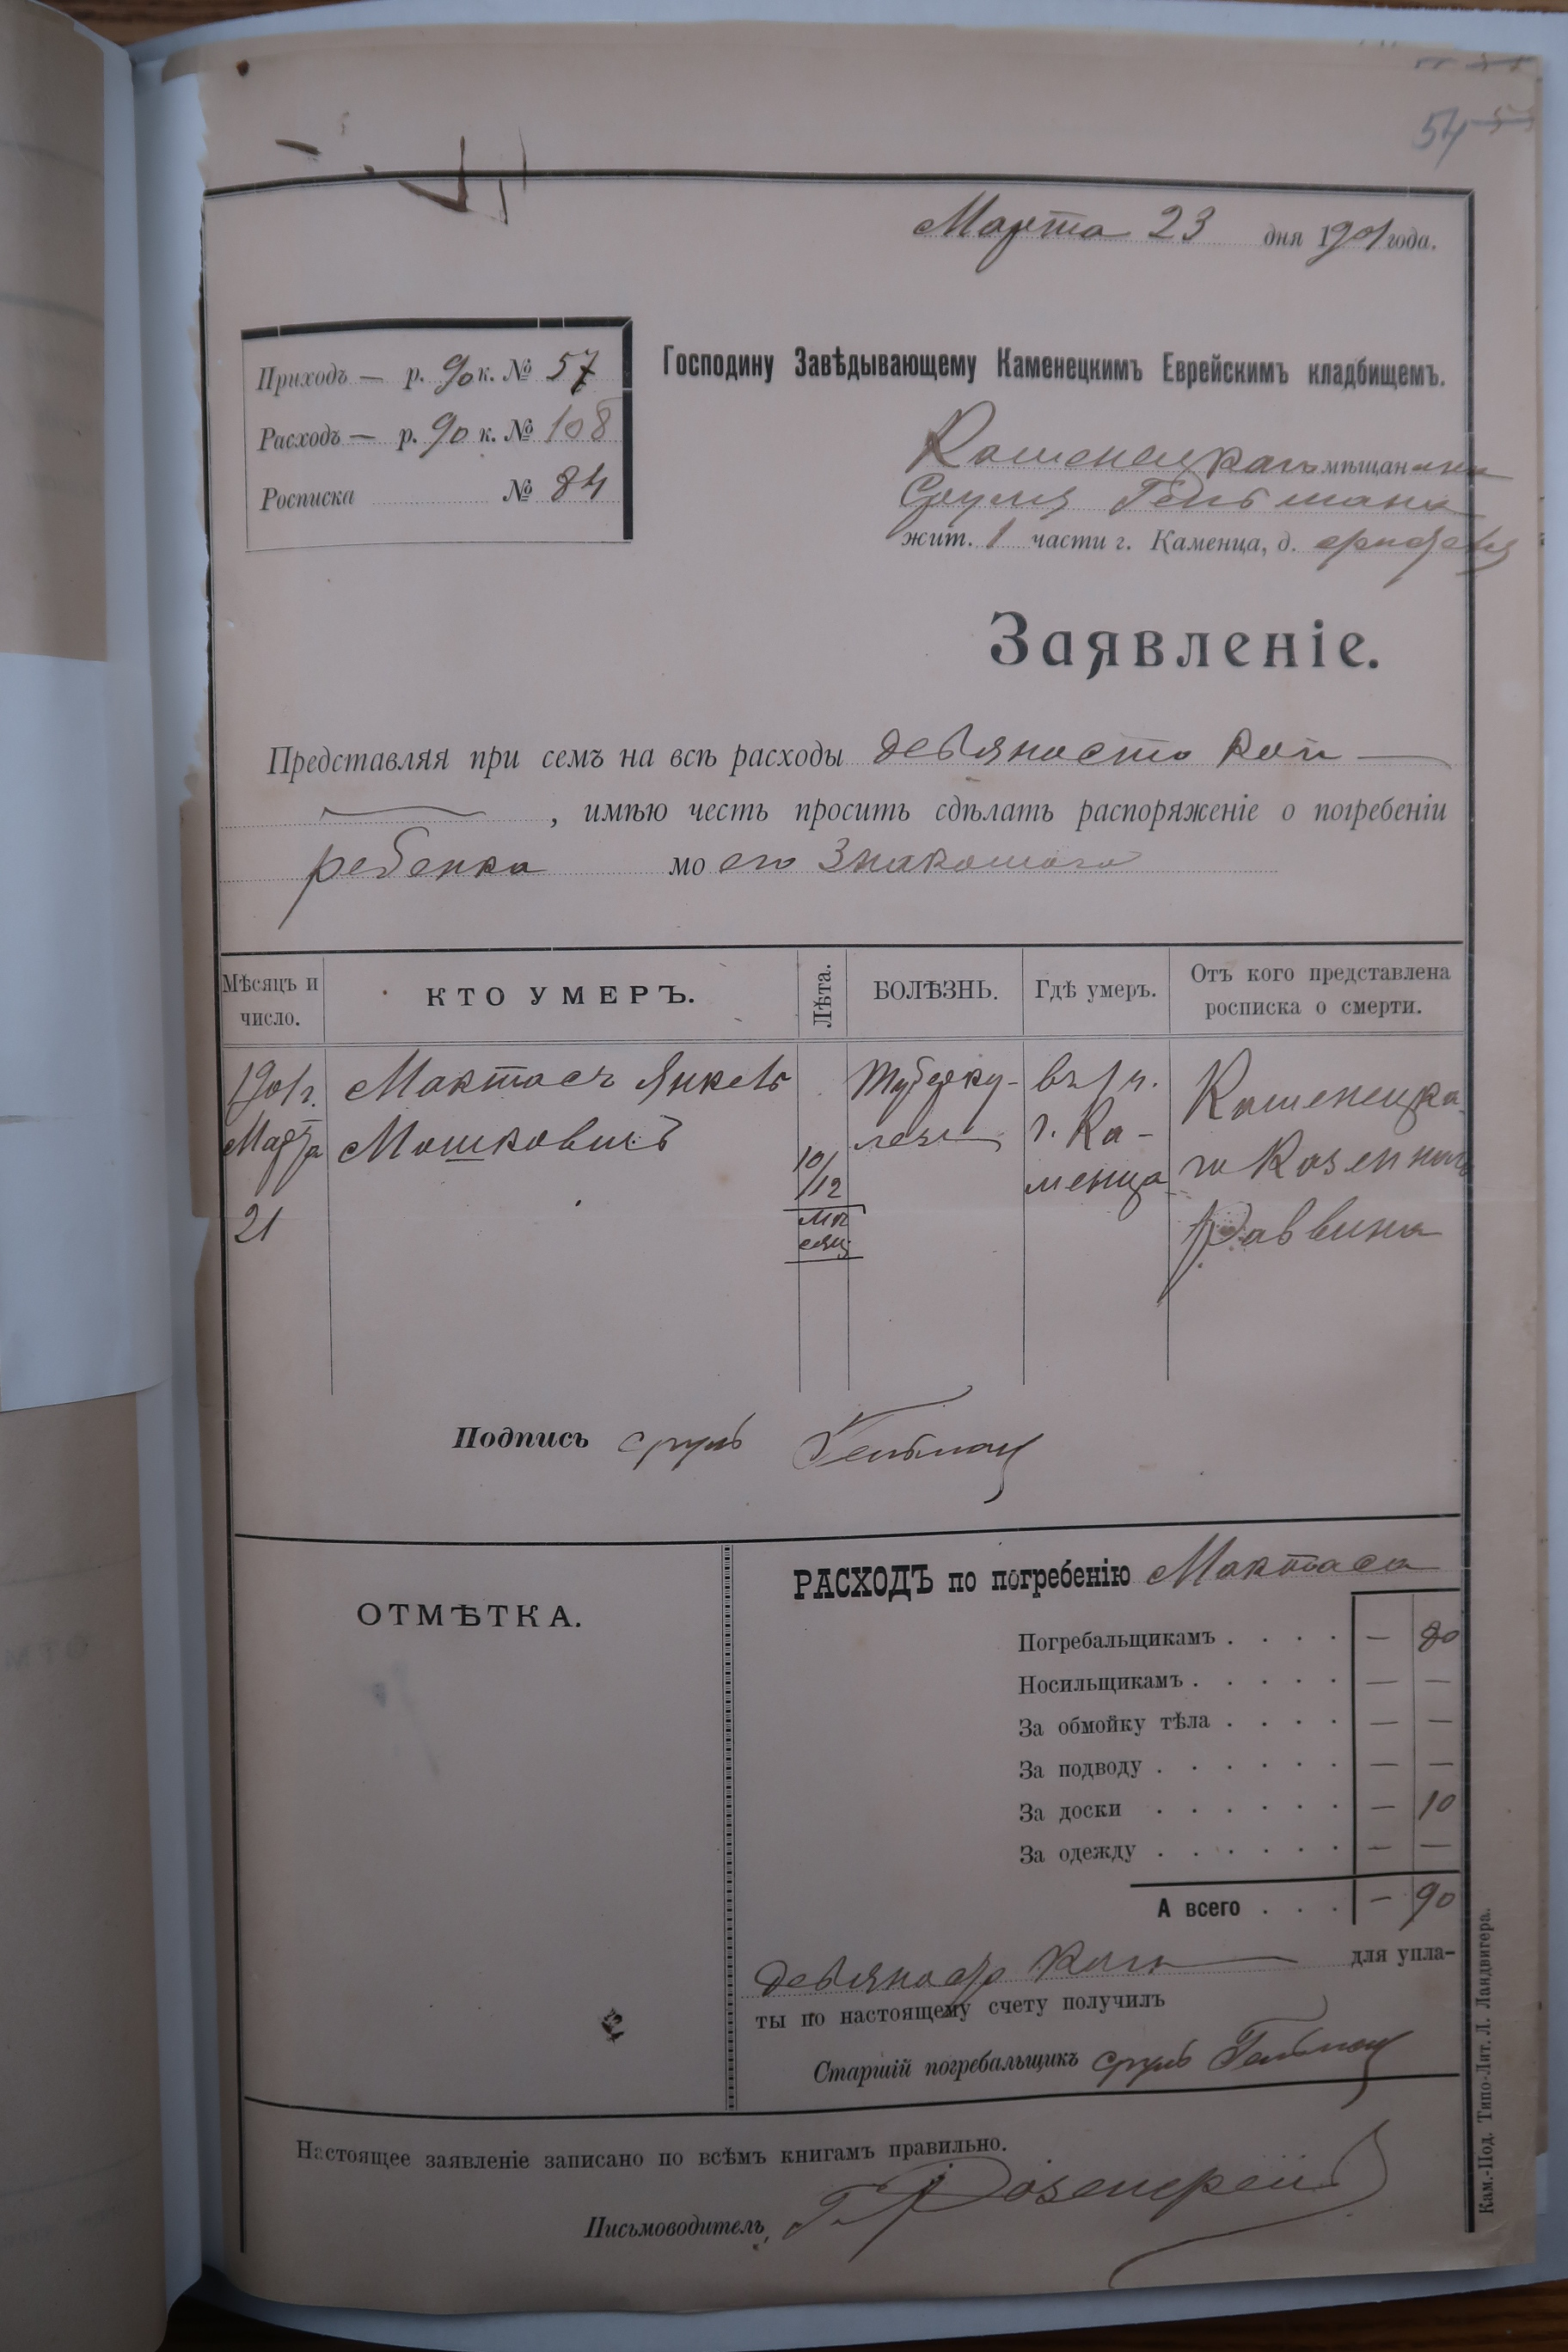 54
Марта 23 дня 1901 года.
Приходъ — р. 90 к. № 57
Расходъ — р. 90 к. № 108
Росписка № 84
Господину Завѣдывающему Каменецкимъ Еврейскимъ кладбищемъ.
Каменецкаго мѣщанина
Сруля Гельмана
жит. 1 части г. Каменца, д.
Заявленіе.
Представляя при семъ на всѣ расходы девяносто коп —
, имѣю честь просить сдѣлать распоряженіе о погребеніи
ребенка моего Знакомого
Мѣсяцъ и число.
КТО УМЕРЪ.
Лѣта.
БОЛѢЗНЬ.
Гдѣ умеръ.
Отъ кого представлена росписка о смерти.
1901 г. Марта 21
Мактасъ Янкель Мошковичъ
10/12 мѣсяц
Туберкулезъ
въ 1 ч. г. Каменца
Каменецкаго Казеннаго Раввина
Подпись Сруль Гельман
ОТМѢТКА.
РАСХОДЪ по погребенію Мактаса
Погребальщикамъ . . . . — 80
Носильщикамъ . . . . . — —
За обмойку тѣла . . . . — —
За подводу . . . . . . — —
За доски . . . . . . — 10
За одежду . . . . . . — —
А всего . . . — 90
девяносто коп — для упла-
ты по настоящему счету получилъ
Старшій погребальщикъ Сруль Гельман
Настоящее заявленіе записано по всѣмъ книгамъ правильно.
Письмоводитель
Кам.-Под. Типо-Лит. Л. Ландвигера.